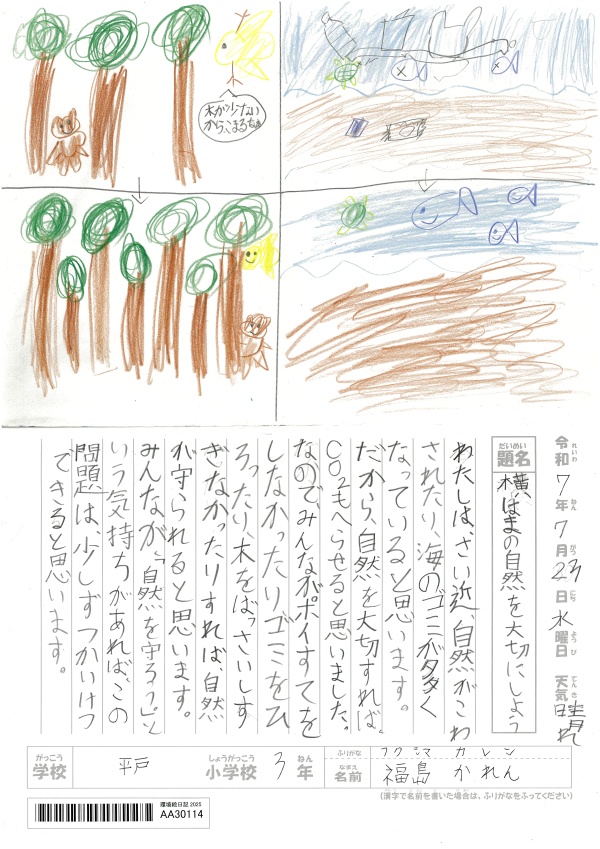 木が少ない
から、こまるなぁ
令和7年7月23日水曜日 天気 晴れ
れいわ ねん がつ にち ようび てんき
だいめい
題名 横はまの自然を大切にしよう
わたしは、さい近、自然がこわ
されたり、海のゴミが多く
なっていると思います。
だから、自然を大切すれば、
CO2もへらせると思いました。
なのでみんながポイすてを
しなかったりゴミをひ
ろったり、木をばっさいしす
ぎなかったりすれば、自然
が守られると思います。
みんなが、「自然を守るフ」と
いう気持ちがあれば、この
問題は、少しずつかいけつ
できると思います。
がっこう しょうがっこう ねん
学校 平戸 小学校 3年
ふりがな フクシマ カレン
なまえ
名前 福島 かれん
(漢字で名前を書いた場合は、ふりがなをふってください)
環境絵日記 2025
AA30114